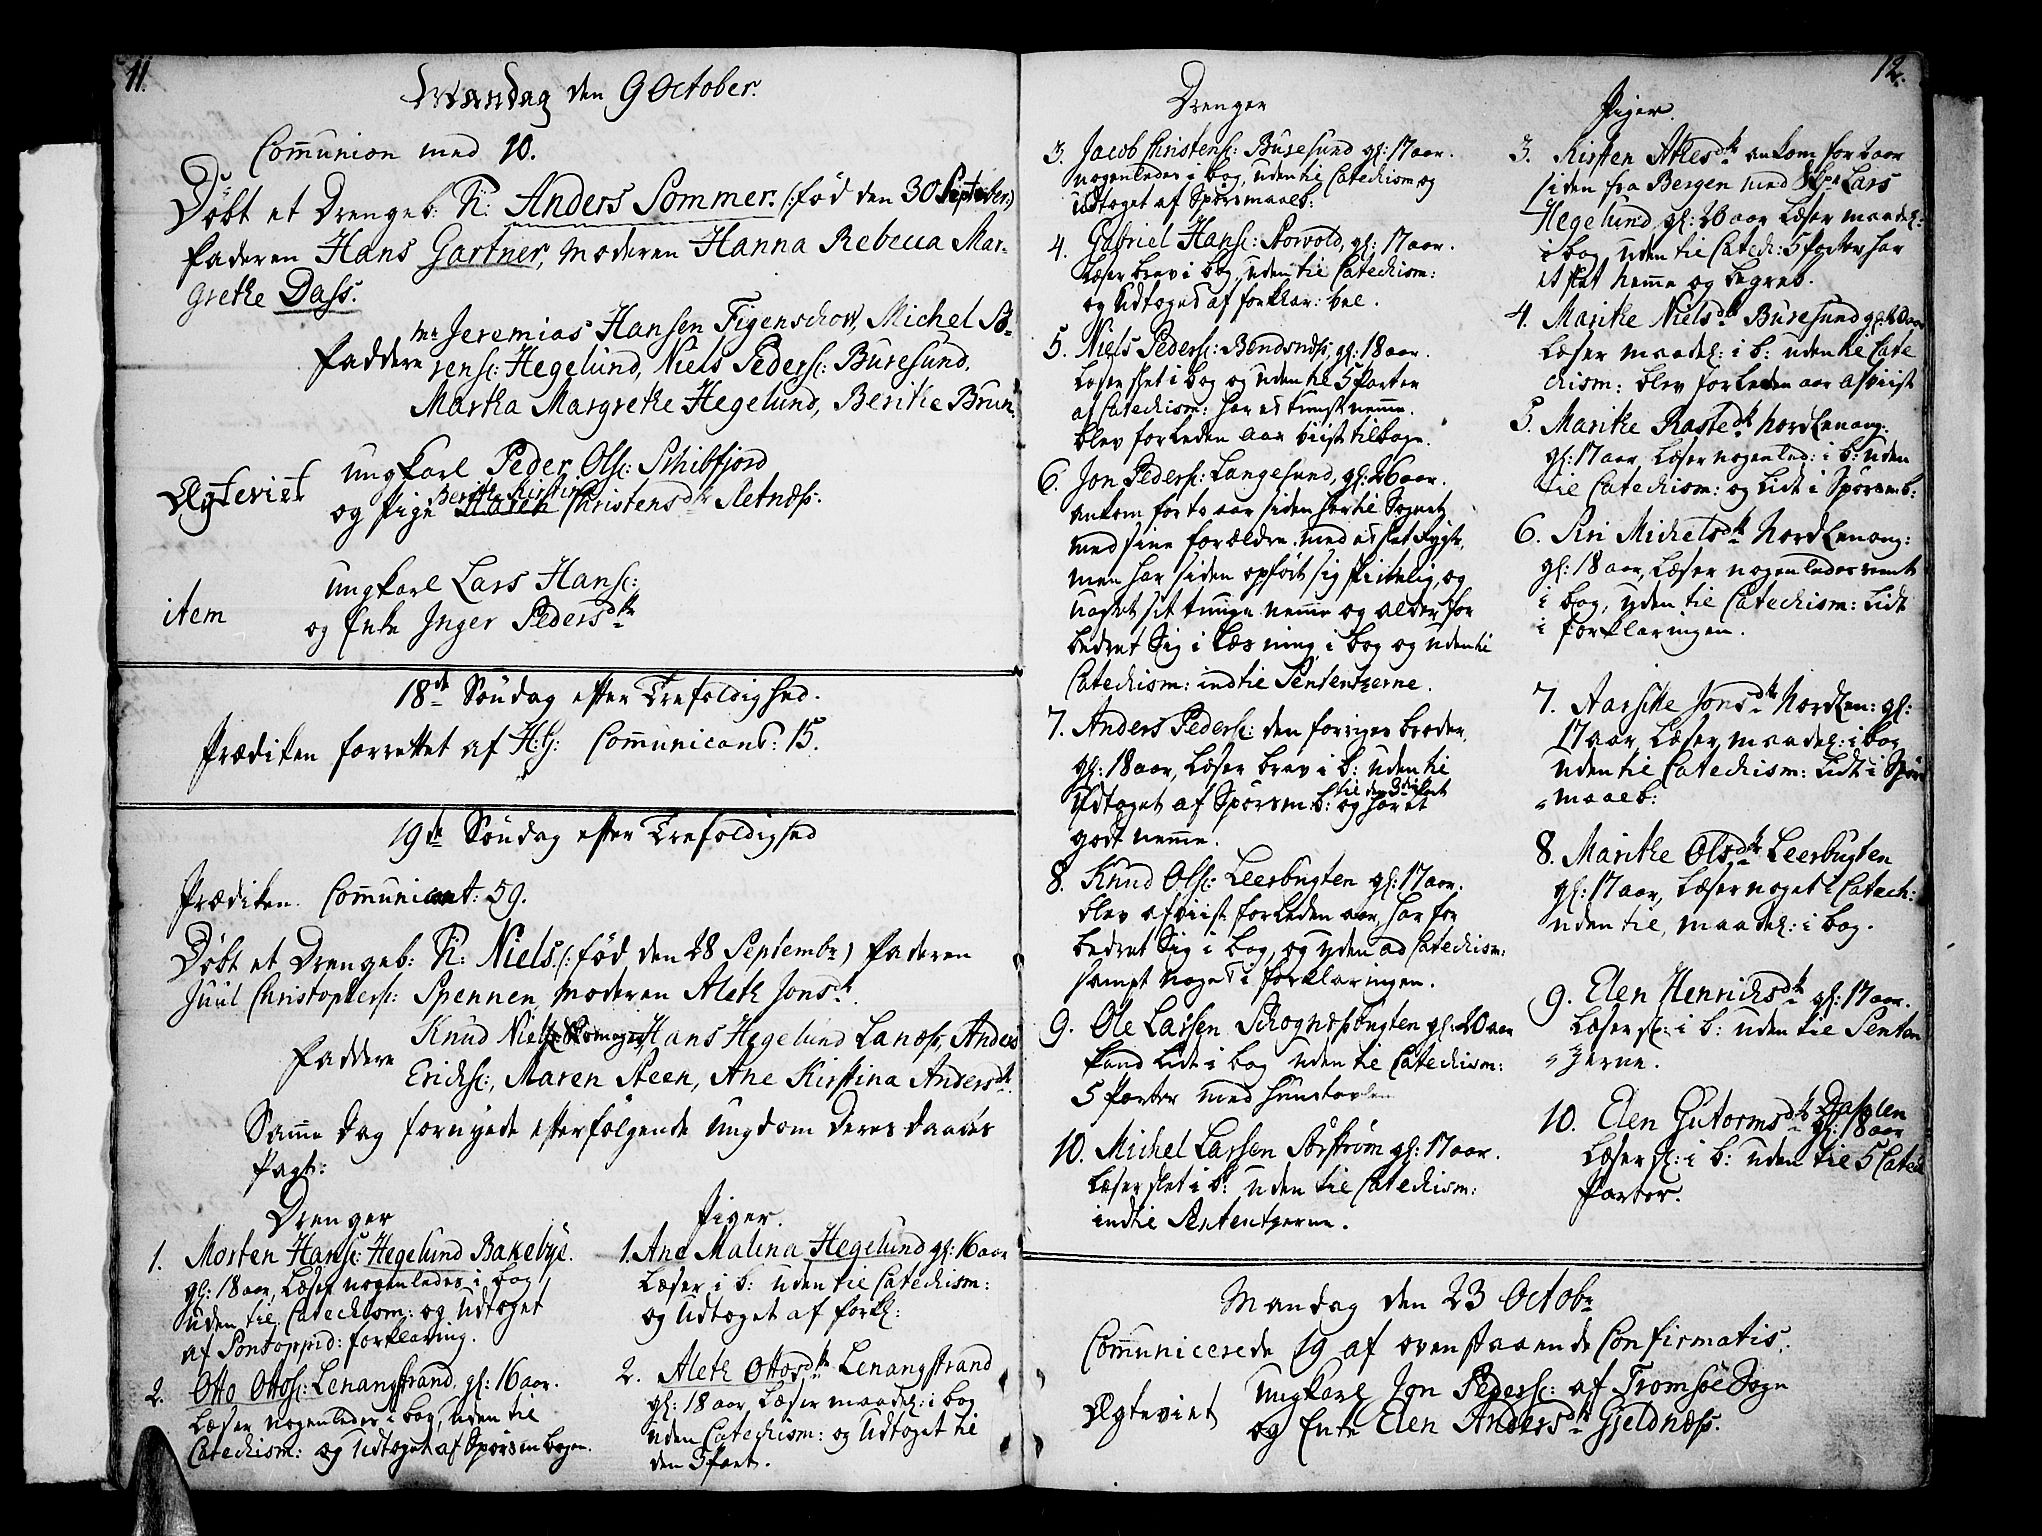 11.
Mandag den 9 October.
Communion med 10.
Döbt et Drengeb: N: Anders Sommer. (: fød den 30 September:)
Faderen Hans Gartner, moderen Hanna Rebecca Mar-
grethe Dass.
mr Jeremias Hansen Figenschow, Michel Sö-
Faddere rensⅽ: Hegelund, Niels Peders: Buresund,
Martha Margrethe Hegelund, Berithe Brun.
ungkarl Peder Ols: Schibfjord
Ægteviet
Berithe Kirstina
og Pige Maren Christensdtr Sletnæss.
ungkarl Lars Hans:
item
og Enke Inger Pedersdtr
18de Söndag efter Trefoldighed.
Prædiken forrettet af H:G: Communicant: 15.
19de Söndag efter Trefoldighed
Prædiken. Communicant: 59.
Döbt et Drengeb: N: Niels. (: fød den 28 Septembr) Faderen
Juul Christophers: Spennen, moderen Aleth Jonsdtr.
Knud Niels: Hans Hegelund Lanæss, Anders
Faddere
Ericks:, Maren Steen, Ane Kirstina Andersdtr.
Samme dag fornyede efterfölgende Ungdom deres daabes
Pagt:
Drenger
1. Morten Hans: Hegelund Bakebye.
gl: 18 aar, Læser nogenledes i bog,
uden til Catechism: og Udtoget
af Pontoppid: forklaring.
2. Otto Ottos: Lenangstrand, gl: 16 aar.
Læser nogenledes i bog, uden til
Catechism: og Udtoget af Spörsm bogen.
Piger.
1. Ane Malena Hegelund gl: 16 aar
Læser i b: uden til Catechism:
og Udtoget af forkl:
2. Aleth Ottosdtr Lenangstrand
gl: 18 aar Læser maadel: i bog
uden Catechism: og Udtoget til
den 3 part.
12.
Drenger
3. Jacob Christens: Buresund gl: 17 aar.
nogenledes i bog, uden til Catechism og
udtoget af Spörsmaalb:
4. Gabriel Hans: Storvold, gl: 17 aar.
Læser brav i bog, uden til Catechism:
og Udtoged af forklar: vel.
5. Niels Peders: Bendsnæss, gl: 18 aar.
Læser slet i bog og uden til 5 Parter
af Catechism: har et tungt nemme.
blev forleden aar viist tilbage.
6. Jon Peders: Langesund, gl: 26 aar.
ankom for to aar siden her til Sognet
med sine forældre med et slet Rygte,
men har siden opfört sig skikkelig, og
uagtet sit tunge nemme og alder for
bedret Sig i Læsning i bog og uden til
Catechism: indtil Sententzerne.
7. Anders Peders: den forriges broder,
gl: 18 aar, Læser brav i b: uden til
til den 3die part
Udtoget af Spörsm:b: og har et
godt nemme.
8. Knud Ols: Leerbugten gl: 17 aar.
blev afviist forleden aar, har for
bedret Sig i bog, og uden ad Catechism:
sampt noget i forklaringen.
9. Ole Larsen Schognæsbugten gl: 20 aar
kand Lidt i bog uden til Catechism:
5 Parter med huustavlen
10. Michel Larsen Sörström gl: 17 aar.
Læser slet i b: uden til Catechism:
indtil Sententzerne.
Piger.
3. Kirsten Atlesdtr ankom for 2 aar
siden fra Bergen med Skpr Lars
Hegelund, gl: 20 aar Læser maadel:
i bog, uden til Catech: 5 Parter har
et slet nemme og begreb.
4. Marithe Nielsdtr Buresund gl: 18 aar
Læser maadel: i b: uden til Cate
chism: blev forleden aar afviist
5. Marithe Rastedtr Nordlenang:
gl: 17 aar, Læser nogenled: i b: uden
til Catechism: og Lidt i Spörsmb:
6. Siri Michelsdtr Nordlenang:
gl: 18 aar, Læser nogenledes rent
i bog, uden til Catechism: Lidt
i forklaringen.
7. Aarsille Jonsdtr NordLen: gl:
17 aar, Læser maadel: i bog
uden til Catechism: Lidt i Spörs
maalb:
8. Marithe Olsdtr Leerbugten
gl: 17 aar, Læser noget i Catech:
uden til, maadel: i bog.
9. Elen Henrichsdtr gl: 17 aar.
Læser sl: i b: uden til Senten
zerne.
10. Elen Gutormsdtr Dasslen
gl: 18 aar
Læser sl: i b: uden til 5 Catech
Parter.
Mandag den 23 Octobr
Communicerede 19 af ovenstaaende Confirmatis.
Ungkarl Jon Peders: af Tromsöe Sogn
Ægteviet
og Enke Elen Andersdtr Gjeldnæss.